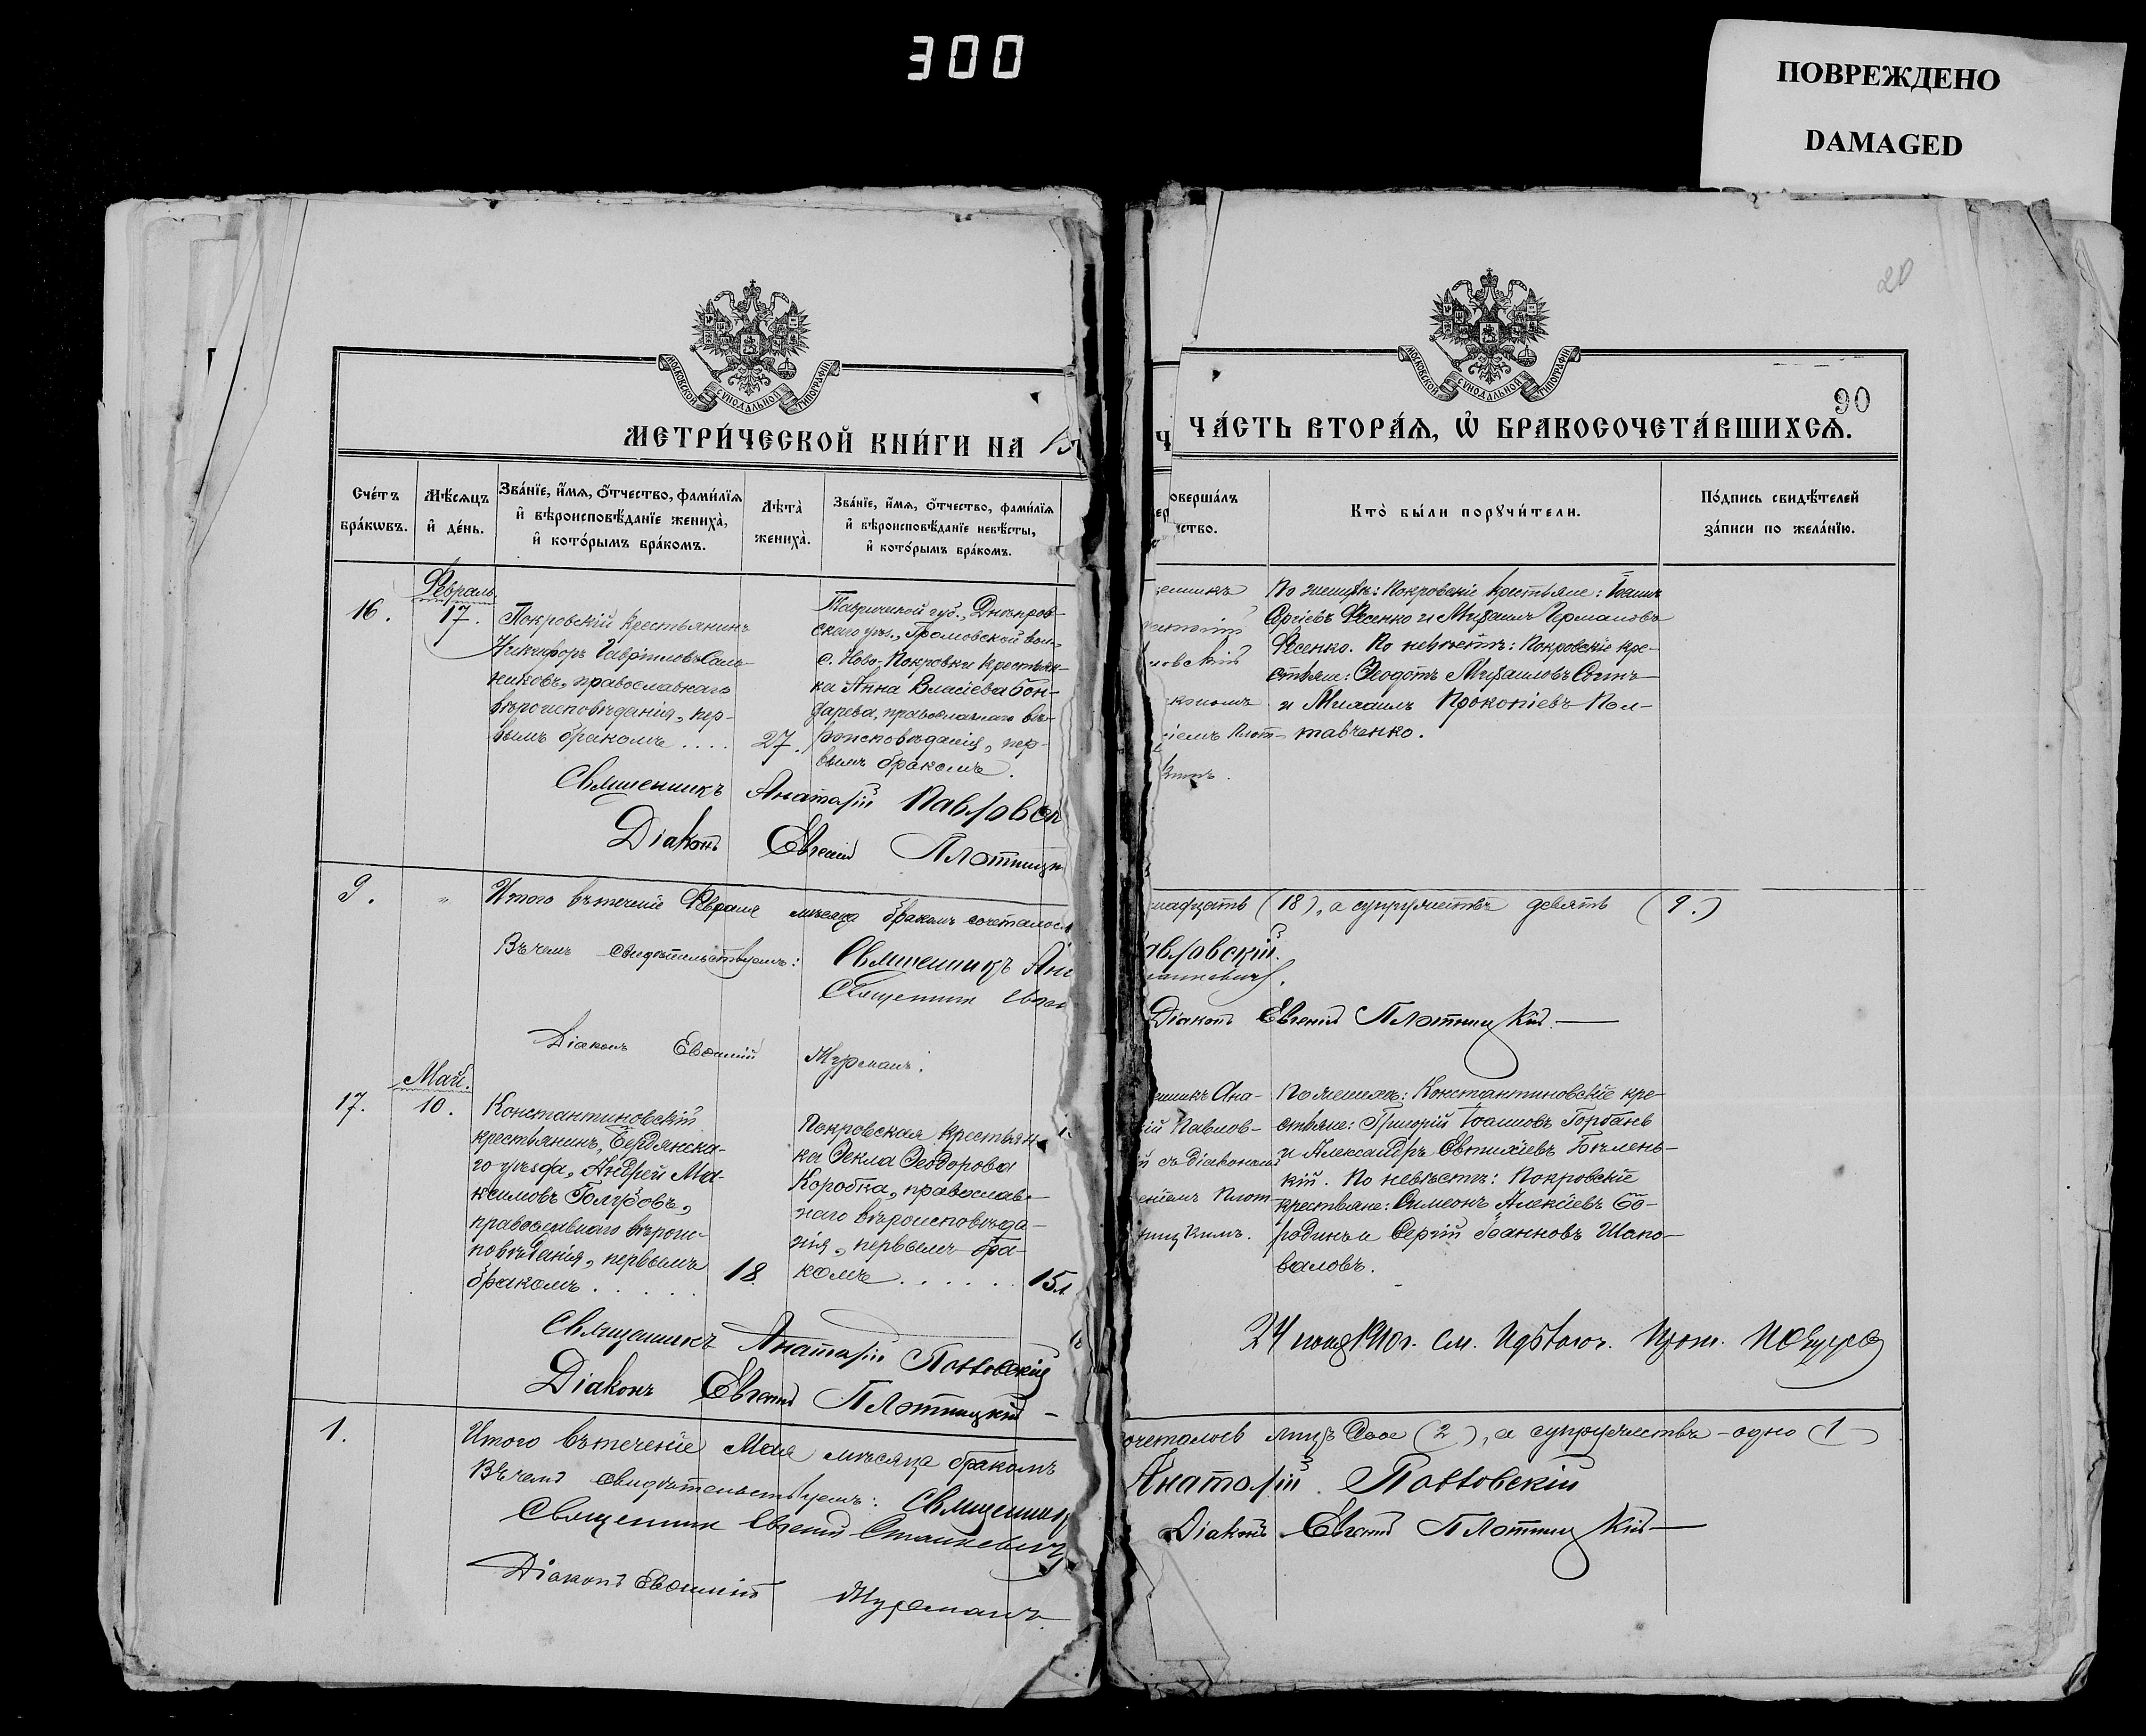 300
ПОВРЕЖДЕНО
DAMAGED
20
90
МОСКОВСКОЙ СѴНОДАЛЬНОЙ ТИПОГРАФІИ
МОСКОВСКОЙ СѴНОДАЛЬНОЙ ТИПОГРАФІИ
МЕТРИ́ЧЕСКОЙ КНИ́ГИ НА
ЧА́СТЬ ВТОРА́Я, Ѡ҆ БРАКОСОЧЕТА́ВШИХСЯ.
Сче́тъ бра́кѡвъ.
Мѣ́сяцъ и҆ де́нь.
Зва́нїе, и҆́мя, ѻ҆́тчество, фами́лїя
и҆ вѣроисповѣ́данїе жениха̀,
и҆ кото́рымъ бра́комъ.
Лѣта̀ жениха̀.
Зва́нїе, и҆́мя, ѻ҆́тчество, фами́лїя
и҆ вѣроисповѣ́данїе невѣ́сты,
и҆ кото́рымъ бра́комъ.
оверша́лъ
ство.
Кто̀ бы́ли порꙋчи́тели.
По́дпись свидѣ́телей
за́писи по жела́нїю.
16.
Февраль
17.
Покровскій крестьянинъ
Никифоръ Гавріиловъ Саль-
никовъ, православнаго
вѣроисповѣданія, пер-
вымъ бракомъ....
27.
Таврической губ., Днѣпров-
скаго уѣз., Громовской вол.,
с. Ново-Покровки крестьян-
ка Анна Власіева Бон-
дарева, православнаго вѣ-
роисповѣданія, пер-
вымъ бракомъ.
По женихѣ: Покровскіе крестьяне: Іоаннъ
Сергіевъ Фесенко и Михаилъ Германовъ
Фесенко. По невѣстѣ: Покровскіе кре-
стьяне: Ѳеодотъ Михаиловъ Сотн
и Михаилъ Прокопіевъ Пол-
тавченко.
Священникъ Анатолій Павловск
Діаконъ Евгеній Плотницк
9.
Итого въ теченіе Февраля мѣсяца бракомъ сочеталос
надцать (18), а супружествъ девять (9.)
Въ чемъ свидѣтельствуемъ: Священникъ Ан
авловскій.
Священникъ Евген
анкевичъ.
Діаконъ Евгеній Плотницкій.
Діаконъ Евѳимій Мурманъ.
17.
Май.
10.
Константиновскій
крестьянинъ, Бердянска-
го уѣзда, Андрей Ма-
ксимовъ Голубовъ,
православнаго вѣроис-
повѣданія, первымъ
бракомъ.....
18
Покровская крестьян-
ка Ѳекла Ѳеодорова
Коробка, православ-
наго вѣроисповѣда-
нія, первымъ бра-
комъ......
15
никъ Ана-
ій Павлов-
й съ діакономъ
еніемъ Плот-
ницкимъ.
По женихѣ: Константиновскіе кре-
стьяне: Григорій Іоанновъ Горбань
и Александръ Евтихіевъ Бѣлень-
кій. По невѣстѣ: Покровскіе
крестьяне: Симеонъ Алексіевъ Бо-
родинъ и Сергій Іоанновъ Шапо-
валовъ.
Священникъ Анатолій Павловскій
Діаконъ Евгеній Плотницкій
1.
Итого въ теченіе Мая мѣсяца бракомъ
очеталось лицъ двое (2), а супружествъ - одно (1)
Въ чемъ свидѣтельствуемъ: Священник
Анатолій Павловскій
Священник Евгеній Станкевичъ
Діаконъ Евгеній Плотницкій
Діаконъ Евѳимій Мурманъ